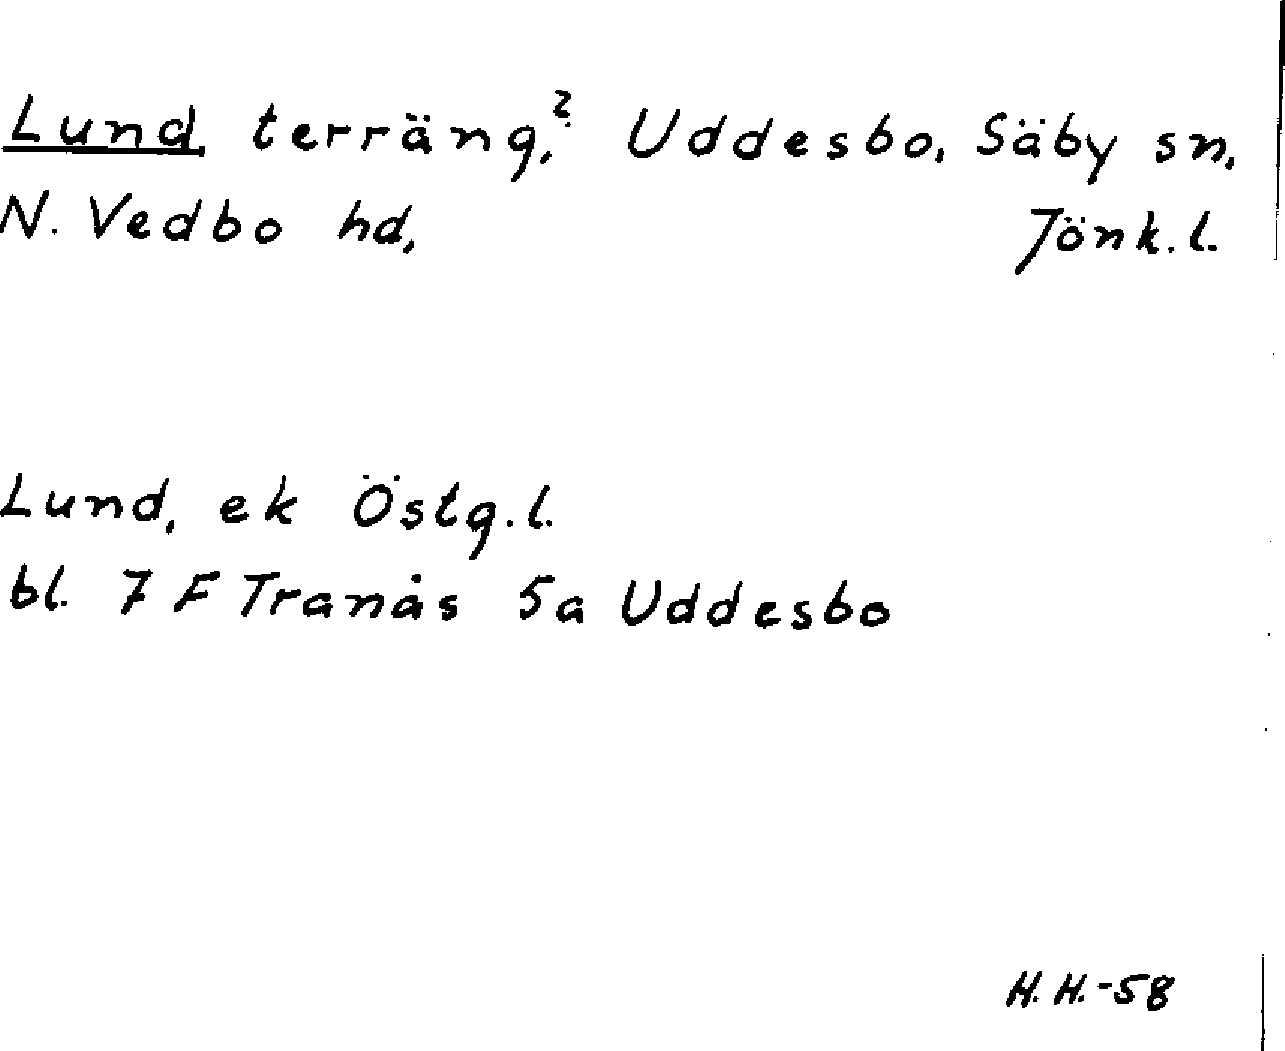 Lund, terräng,? Uddesbo, Säby sn,
N. Vedbo hd, Jönk. l.
Lund, ek Östg. l.
bl. 7 F Tranås 5a Uddesbo
H. H. -58